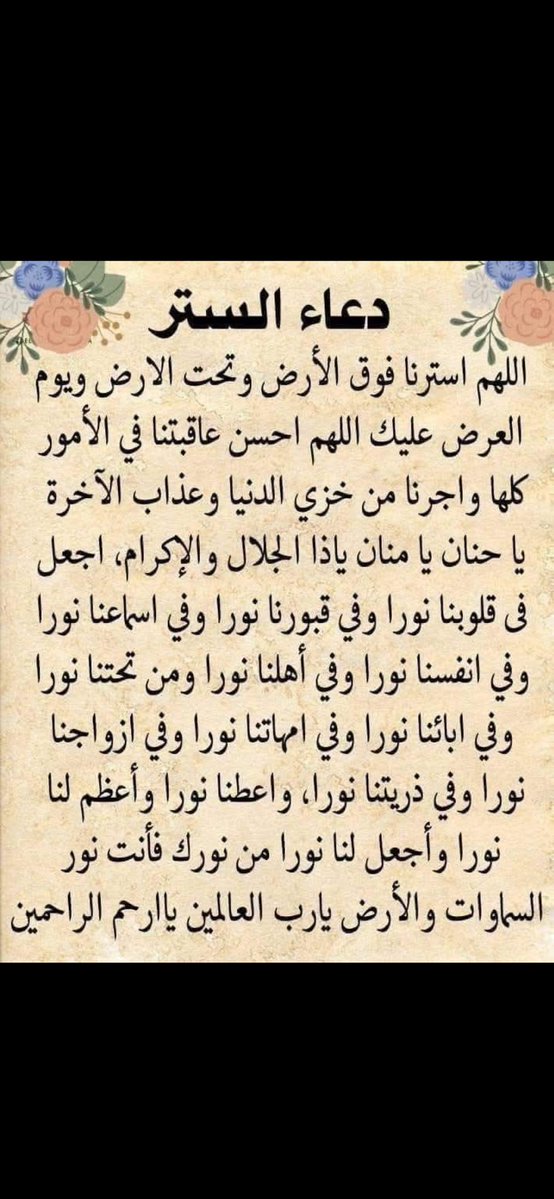 دعاء الستر
اللهم استرنا فوق الأرض وتحت الارض ويوم
العرض عليك اللهم احسن عاقبتنا في الأمور
كلها واجرنا من خزي الدنيا وعذاب الآخرة
يا حنان يا منان ياذا الجلال والإكرام، اجعل
فى قلوبنا نورا وفي قبورنا نورا وفي اسماعنا نورا
وفي انفسنا نورا وفي أهلنا نورا ومن تحتنا نورا
وفي ابائنا نورا وفي امهاتنا نورا وفي ازواجنا
نورا وفي ذريتنا نورا، واعطنا نورا وأعظم لنا
نورا وأجعل لنا نورا من نورك فأنت نور
السماوات والأرض يارب العالمين ياارحم الراحمين